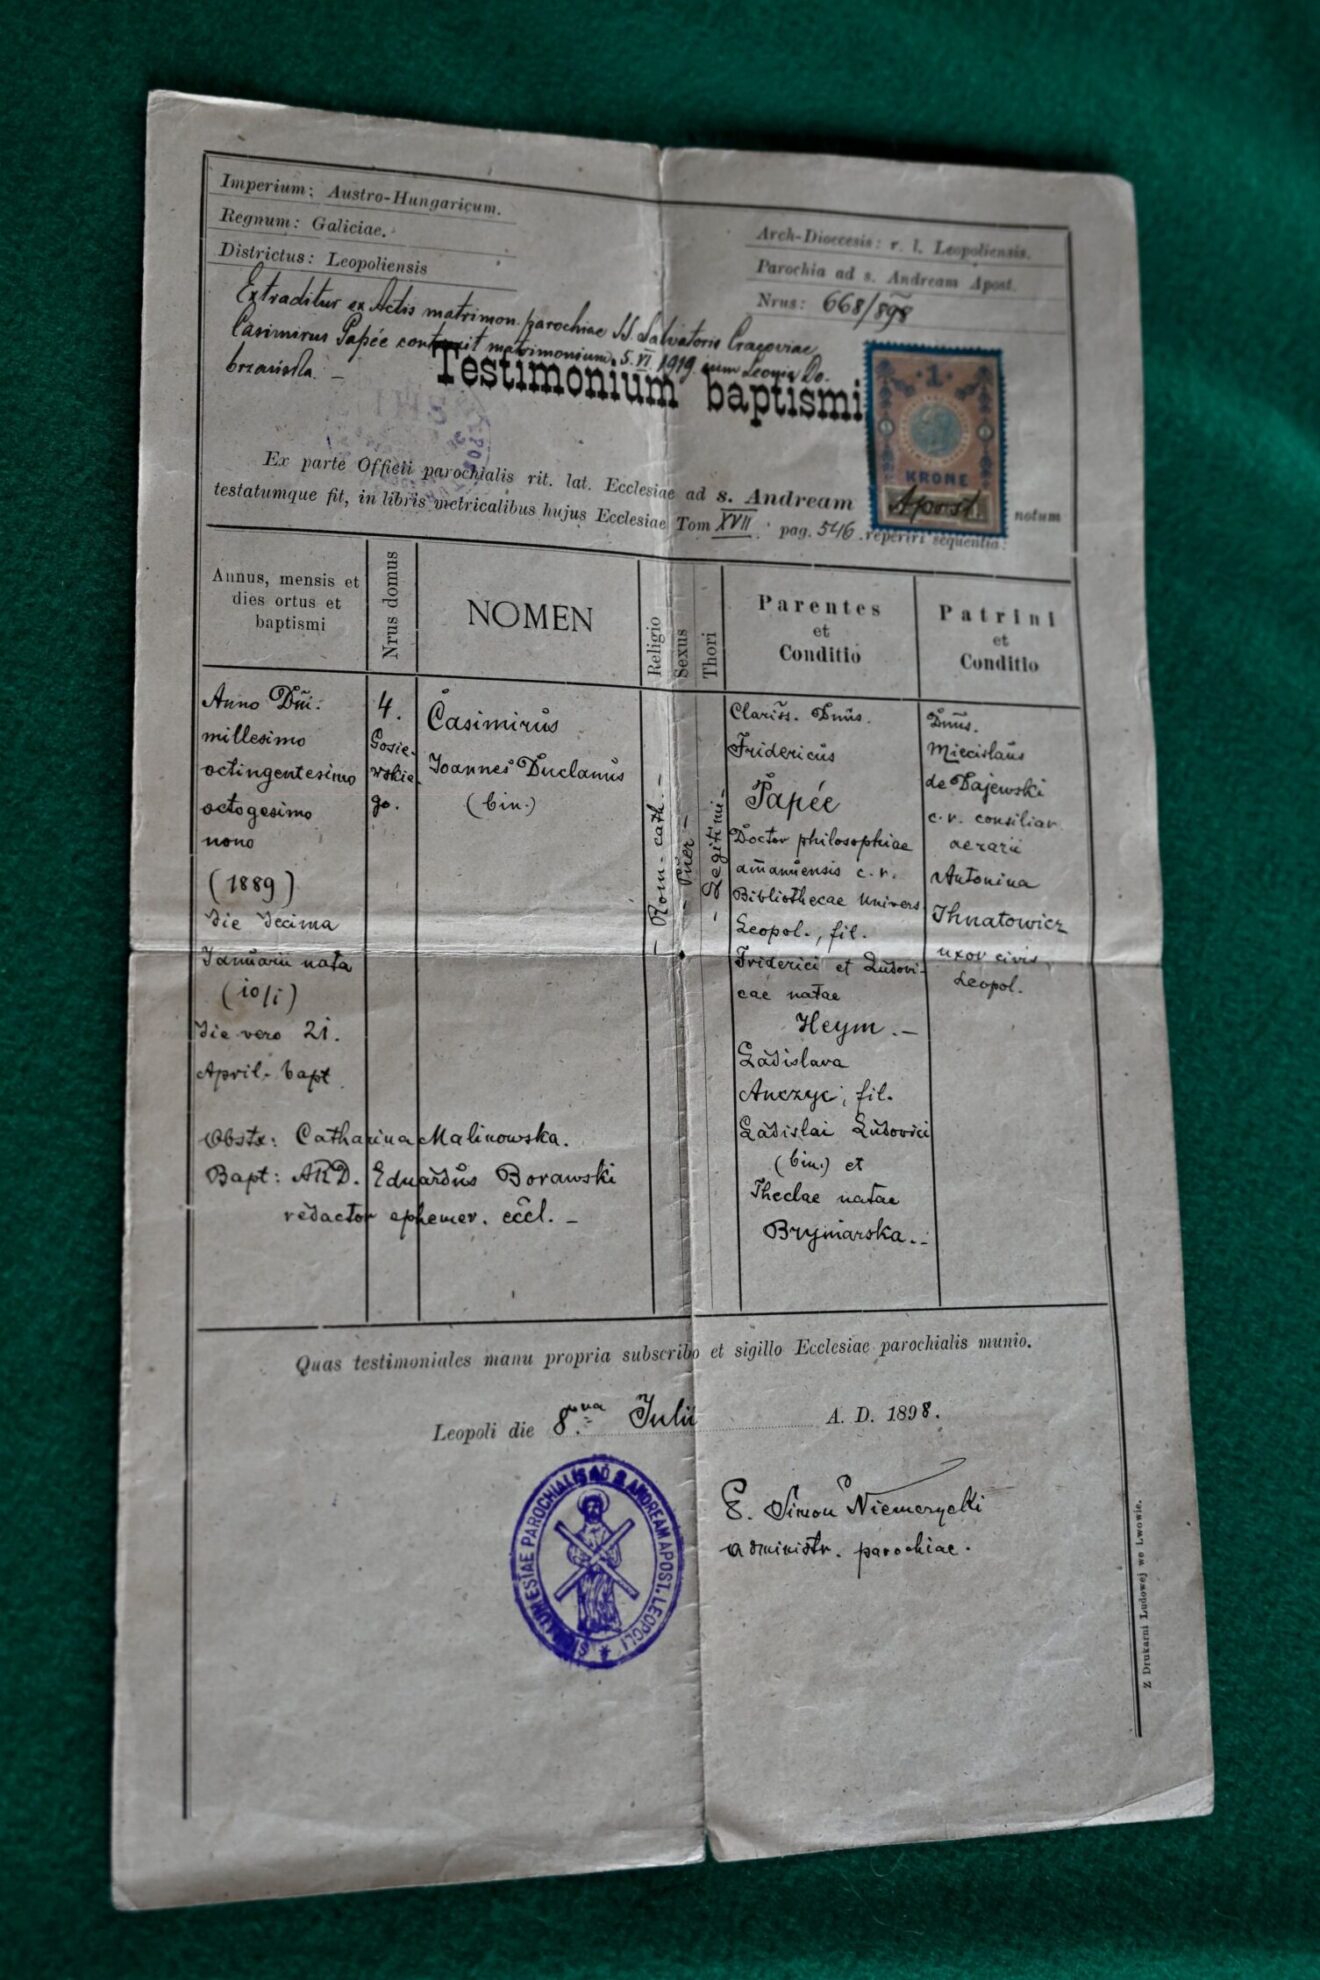 Imperium: Austro-Hungaricum.
Regnum: Galiciae.
Districtus: Leopoliensis
Arch-Dioecesis: r. l. Leopoliensis.
Parochia ad s. Andream Apost.
Nrus: 668/898
Extraditur ex Actis matrimon. parochiae SS. Salvatoris Cracoviae
Casimirus Papée contraxit matrimonium 5. VI 1919 cum Leonia Do-
brzańska. –
Testimonium baptismi
1
KRONE
Ex parte Officii parochialis rit. lat. Ecclesiae ad s. Andream Apost. notum
testatumque fit, in libris metricalibus hujus Ecclesiae Tom XVII. pag. 546 reperiri sequentia:
Annus, mensis et
dies ortus et
baptismi
Nrus domus
NOMEN
Religio
Sexus
Thori
Parentes
et
Conditio
Patrini
et
Conditio
Anno Dni.
millesimo
octingentesimo
octogesimo
nono
(1889)
die decima
Januarii nata
(10/1)
die vero 21.
April. bapt.
4.
Gosie-
wskie-
go.
Casimirus
Joannes Duclanus
(bin.)
– Rom. cath. –
– Puer –
– Legitimi –
Clariss. Dnus.
Fridericus
Papée
Doctor philosophiae
amanuensis c. r.
Bibliothecae Univers
Leopol., fil.
Friderici et Ludovi-
cae natae
Heym. –
Ladislava
Anczyc, fil.
Ladislai Ludovici
(bin.) et
Theclae natae
Brymarska. –
Dnus.
Miecislaus
de Dajewski
c. r. consiliar.
aerarii
Antonina
Ihnatowicz
uxor civis.
Leopol.
Obstx: Catharina Malinowska.
Bapt: ARD. Eduardus Borawski
redactor ephemer. eccl. –
Quas testimoniales manu propria subscribo et sigillo Ecclesiae parochialis munio.
Leopoli die 8va Julii A. D. 1898.
SIGILLUM ECCLESIAE PAROCHIALIS AD S. ANDREAM APOST. LEOPOLI
Simon Niemczycki
administr. parochiae.
Z Drukarni Ludowej we Lwowie.